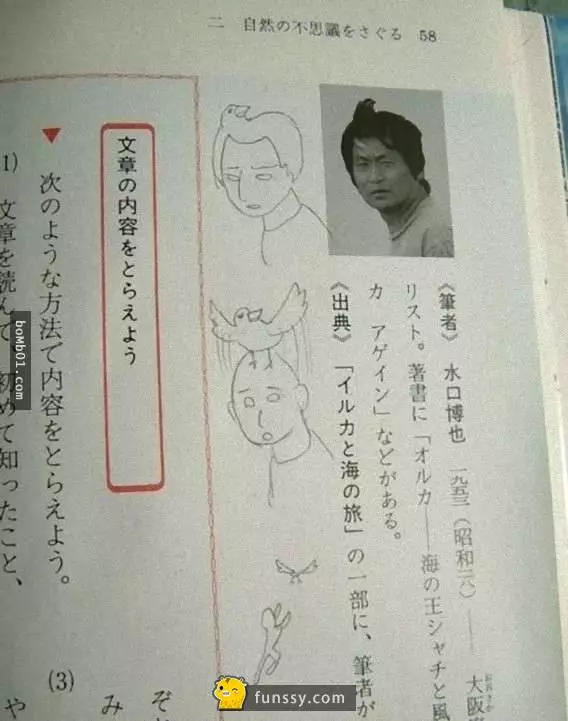 二 自然の不思議をさぐる 58
《筆者》 水口博也 一九五三(昭和二八)―― 大阪
リスト。著書に「オルカ――海の王シャチと風
カ アゲイン」などがある。
《出典》 「イルカと海の旅」の一部に、筆者が
文章の内容をとらえよう
▼ 次のような方法で内容をとらえよう。
1) 文章を読んで、初めて知ったこと、
(3)
ぞ
み
や
bomb01.com
funssy.com